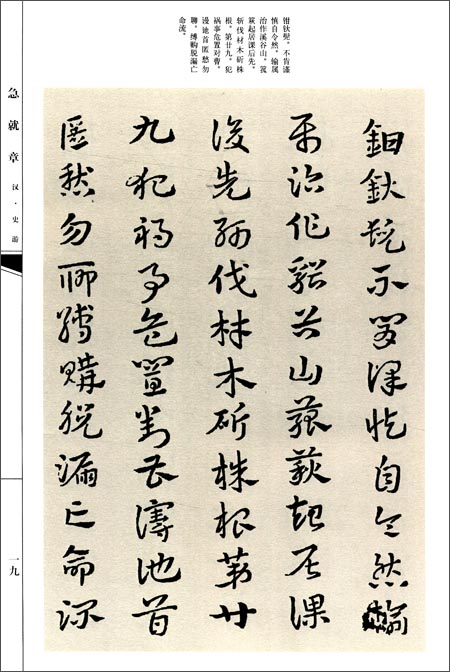 钳釱髡。不肯谨
慎自令然。输属
诒作溪谷山。箛
篍起居课后先。
斩伐材木斫株
根。第廿九。犯
祸事危置对曹。
谩訑首匿愁勿
聊。缚购脱漏亡
命流。
鉗釱髡不肯謹慎自令然輸
属詒作谿谷山箛篍起居課
後先斬伐材木斫株根第廿
九犯禍事危置對曹謾訑首
匿愁勿聊縛購脱漏亡命流
急就章
汉·史游
一九